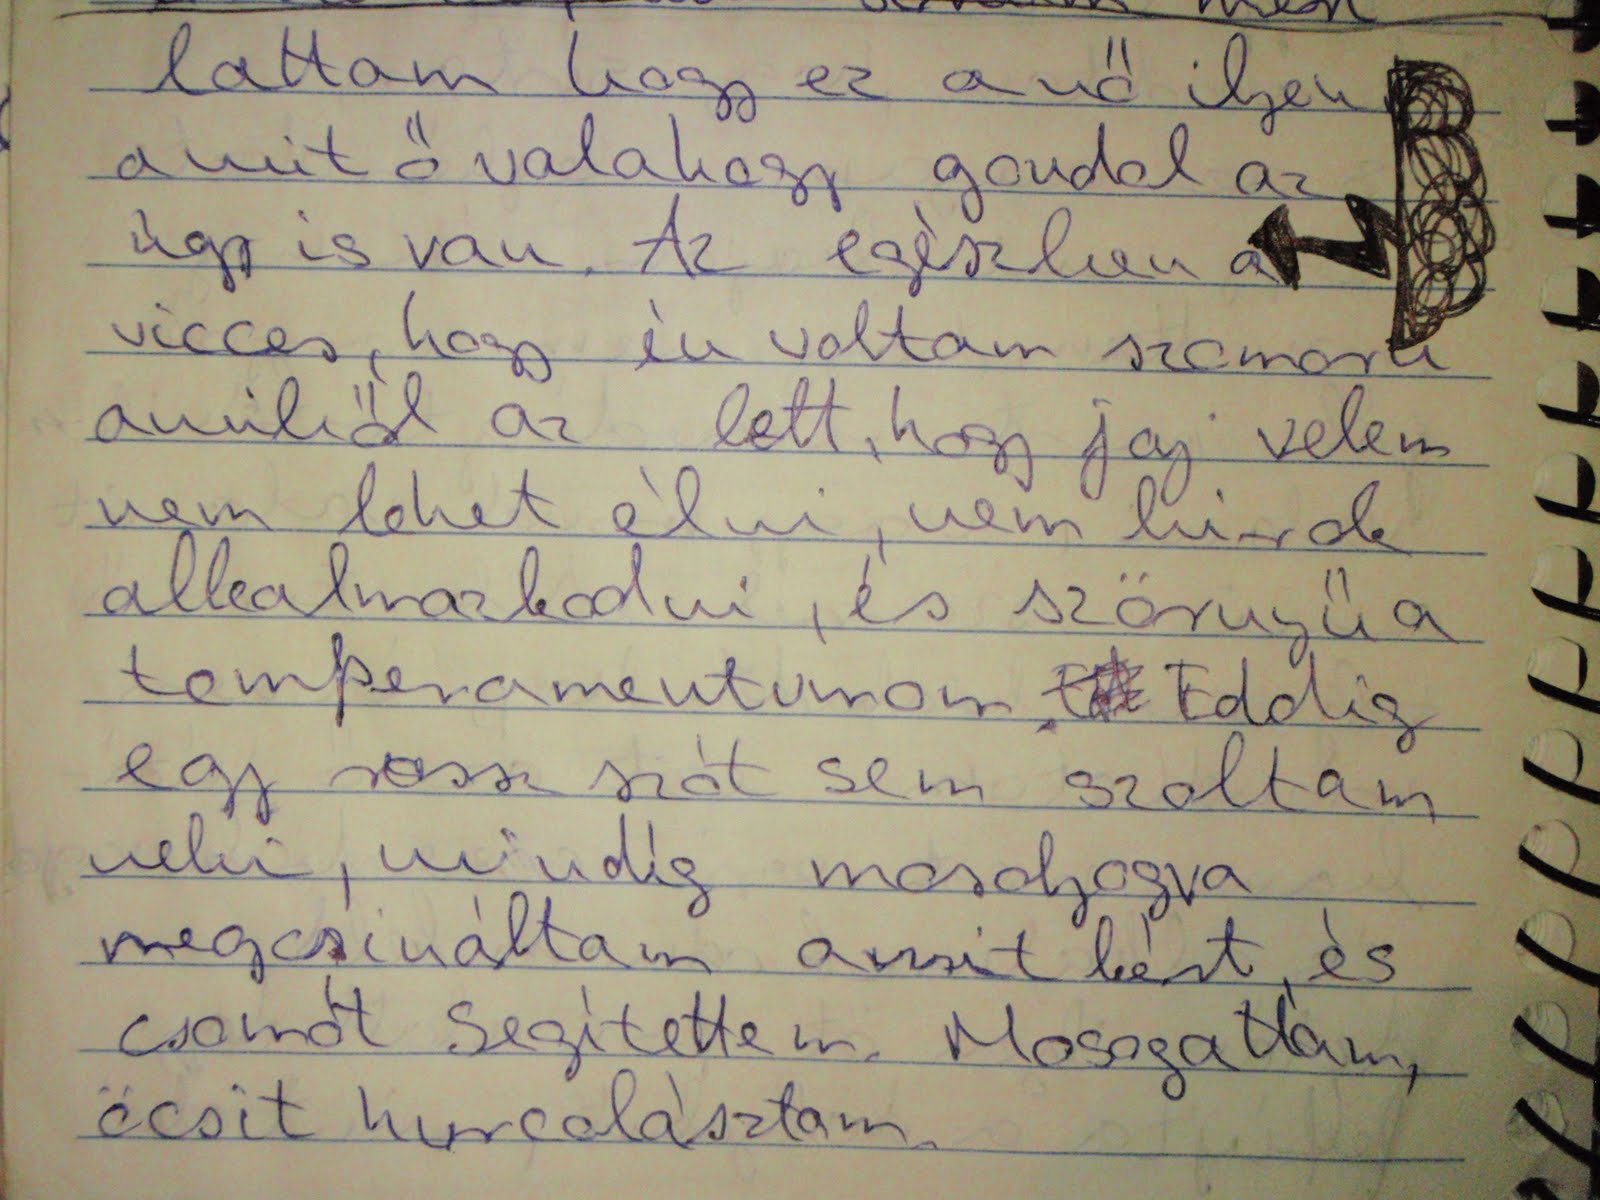 lattam hogy ez a nő ilyen
amit ő valahogy gondol az
úgy is van. Az egészben a
vicces, hogy én voltam szomorú
amiből az lett, hogy jaj velem
nem lehet élni, nem bírok
alkalmazkodni, és szörnyű a
temperamentumom. Eddig
egy rossz szót sem szoltam
neki, mindig mosolyogva
megcsináltam amit kért, és
csomót segítettem. Mosogattam,
öcsit hurcolásztam.